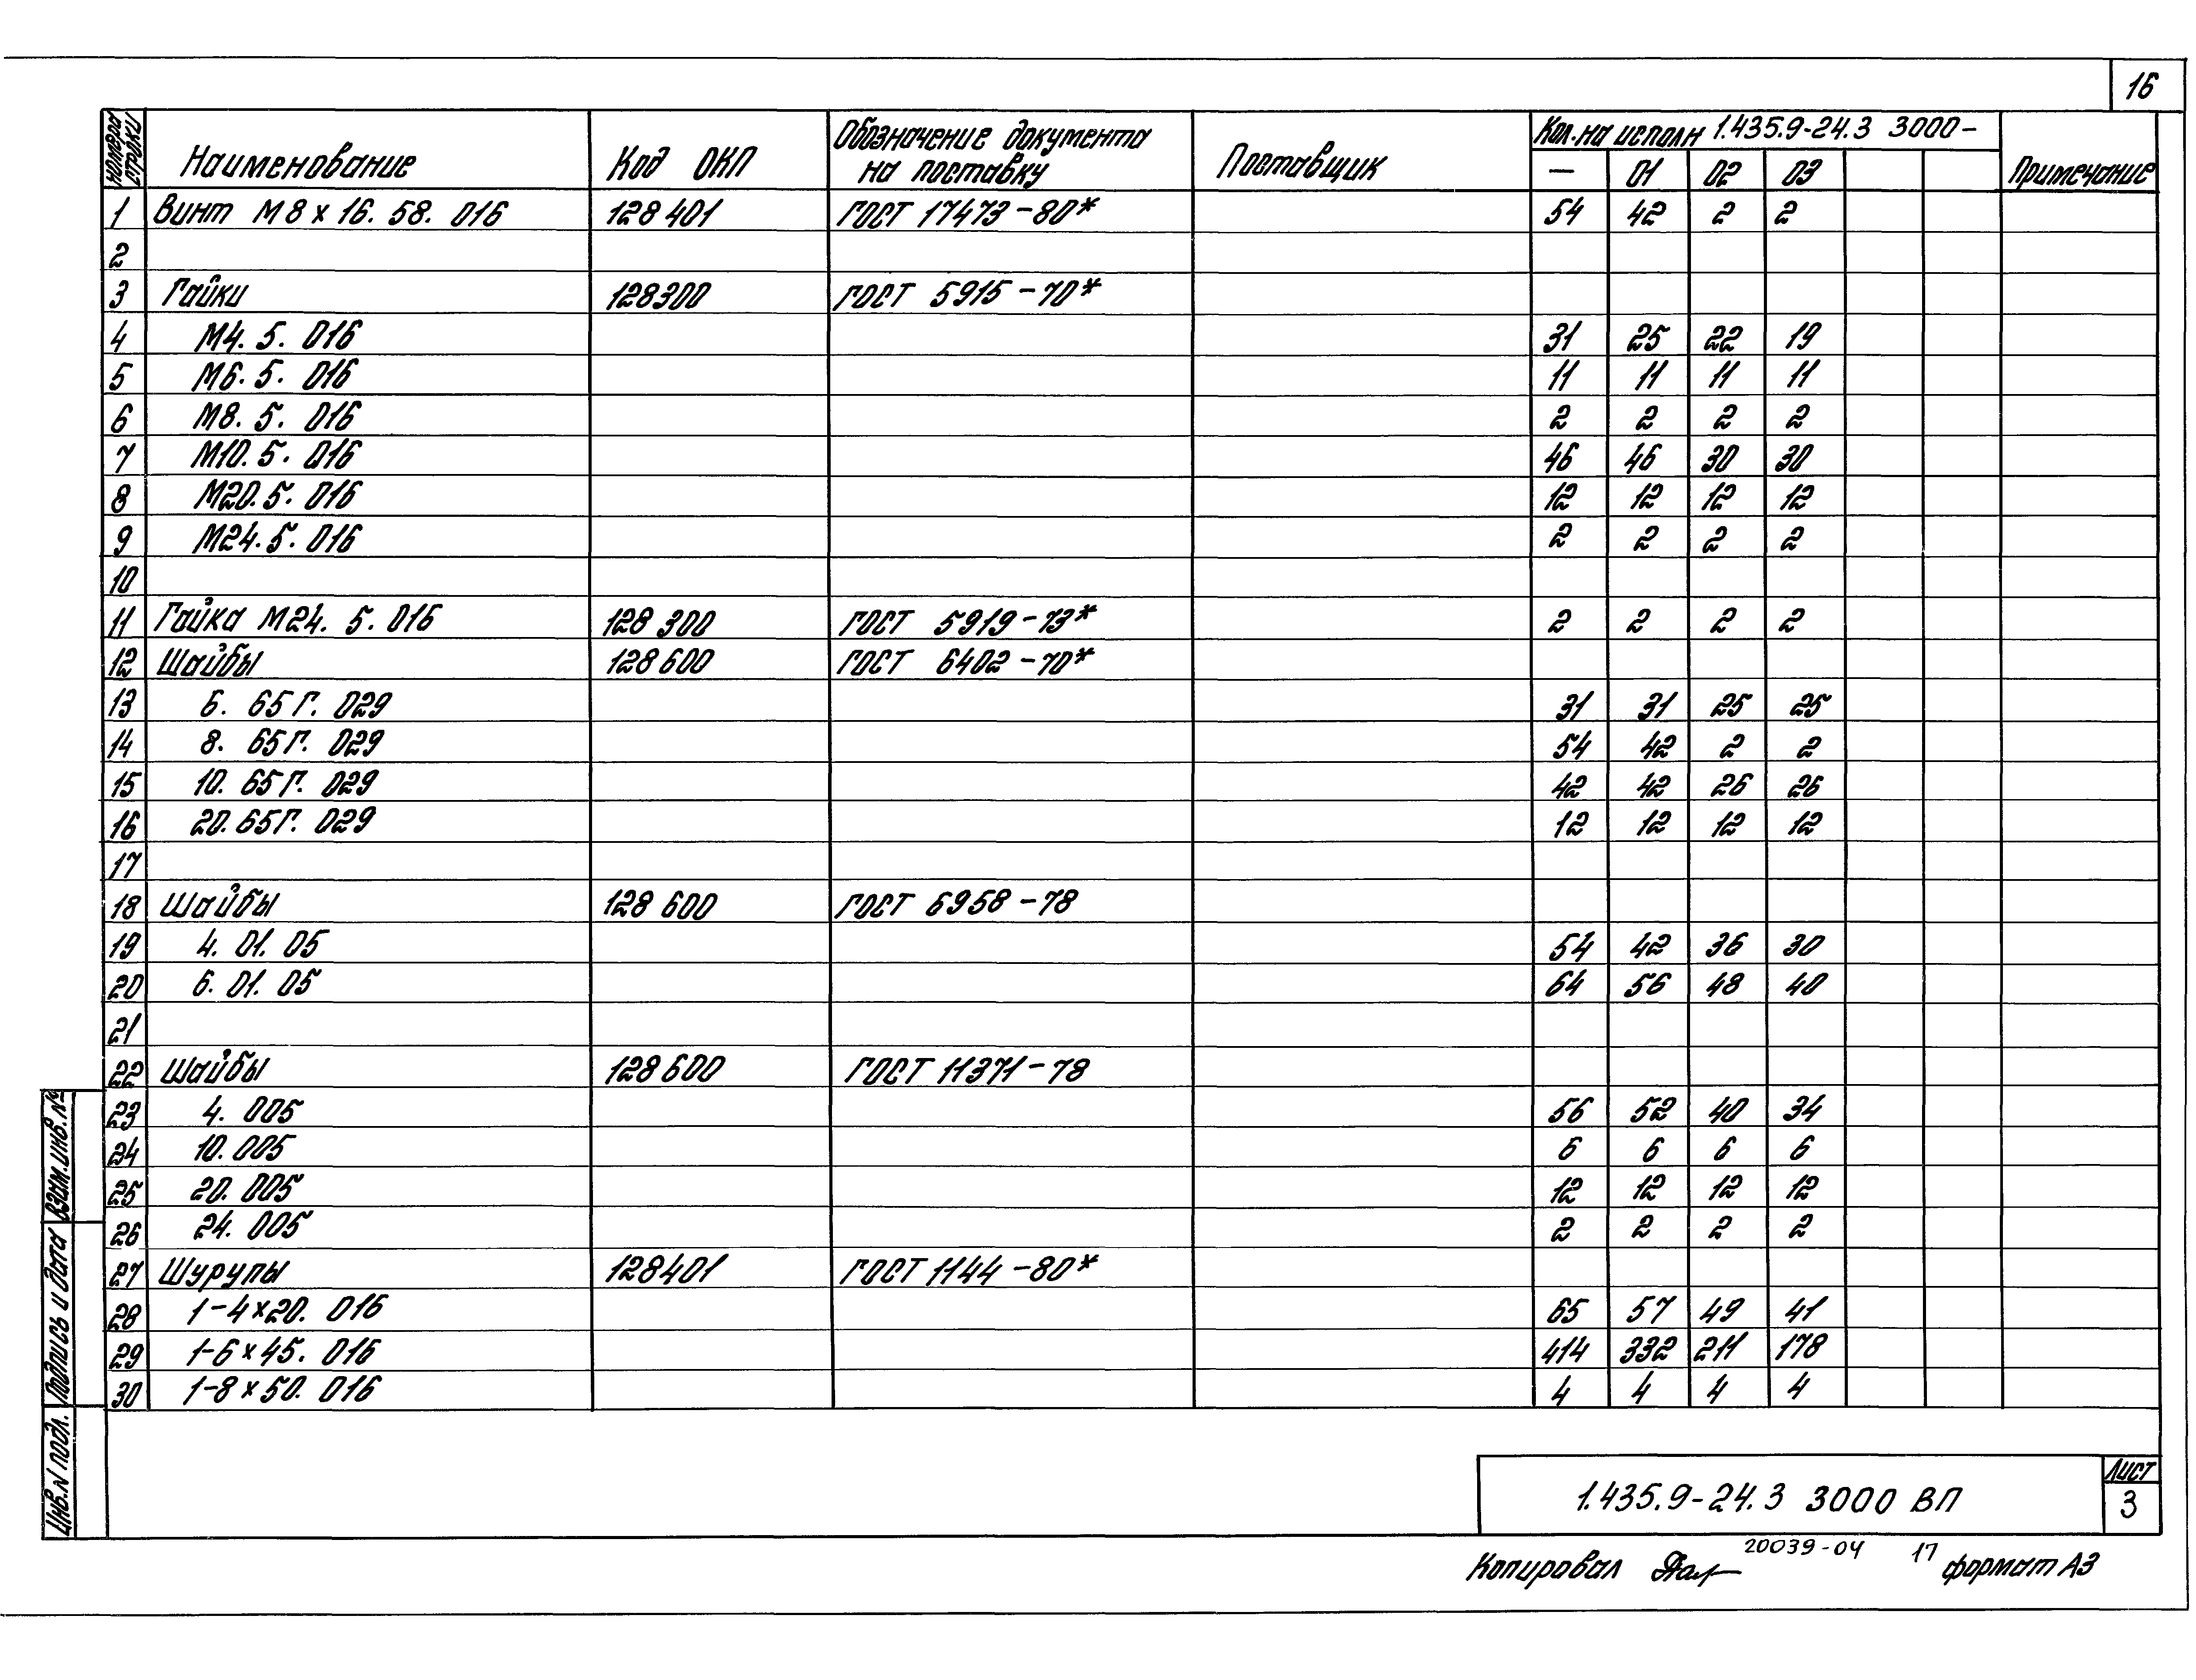 16
Номера строки | Наименование | Код ОКП | Обозначение документа на поставку | Поставщик | Кол. на исполн 1.435.9-24.3 3000- | Примечание
— 01 02 03
1 Винт М8 х 16. 58. 016 128 401 ГОСТ 17473-80* 54 42 2 2
2
3 Гайки 128300 ГОСТ 5915-70*
4 М4. 5. 016 31 25 22 19
5 М6. 5. 016 11 11 11 11
6 М8. 5. 016 2 2 2 2
7 М10. 5. 016 46 46 30 30
8 М20. 5. 016 12 12 12 12
9 М24. 5. 016 2 2 2 2
10
11 Гайка М24. 5. 016 128 300 ГОСТ 5919-73* 2 2 2 2
12 Шайбы 128 600 ГОСТ 6402-70*
13 6. 65Г. 029 31 31 25 25
14 8. 65Г. 029 54 42 2 2
15 10. 65Г. 029 42 42 26 26
16 20. 65Г. 029 12 12 12 12
17
18 Шайбы 128 600 ГОСТ 6958-78
19 4. 01. 05 54 42 36 30
20 6. 01. 05 64 56 48 40
21
22 Шайбы 128 600 ГОСТ 11371-78
23 4. 005 56 52 40 34
24 10. 005 6 6 6 6
25 20. 005 12 12 12 12
26 24. 005 2 2 2 2
27 Шурупы 128401 ГОСТ 1144-80*
28 1-4х20. 016 65 57 49 41
29 1-6х45. 016 414 332 211 178
30 1-8х50. 016 4 4 4 4
Взам.инв.№
Подпись и дата
Инв.N подл.
1.435.9-24.3 3000 ВП
Лист
3
Копировал
20039-04 17
формат А3